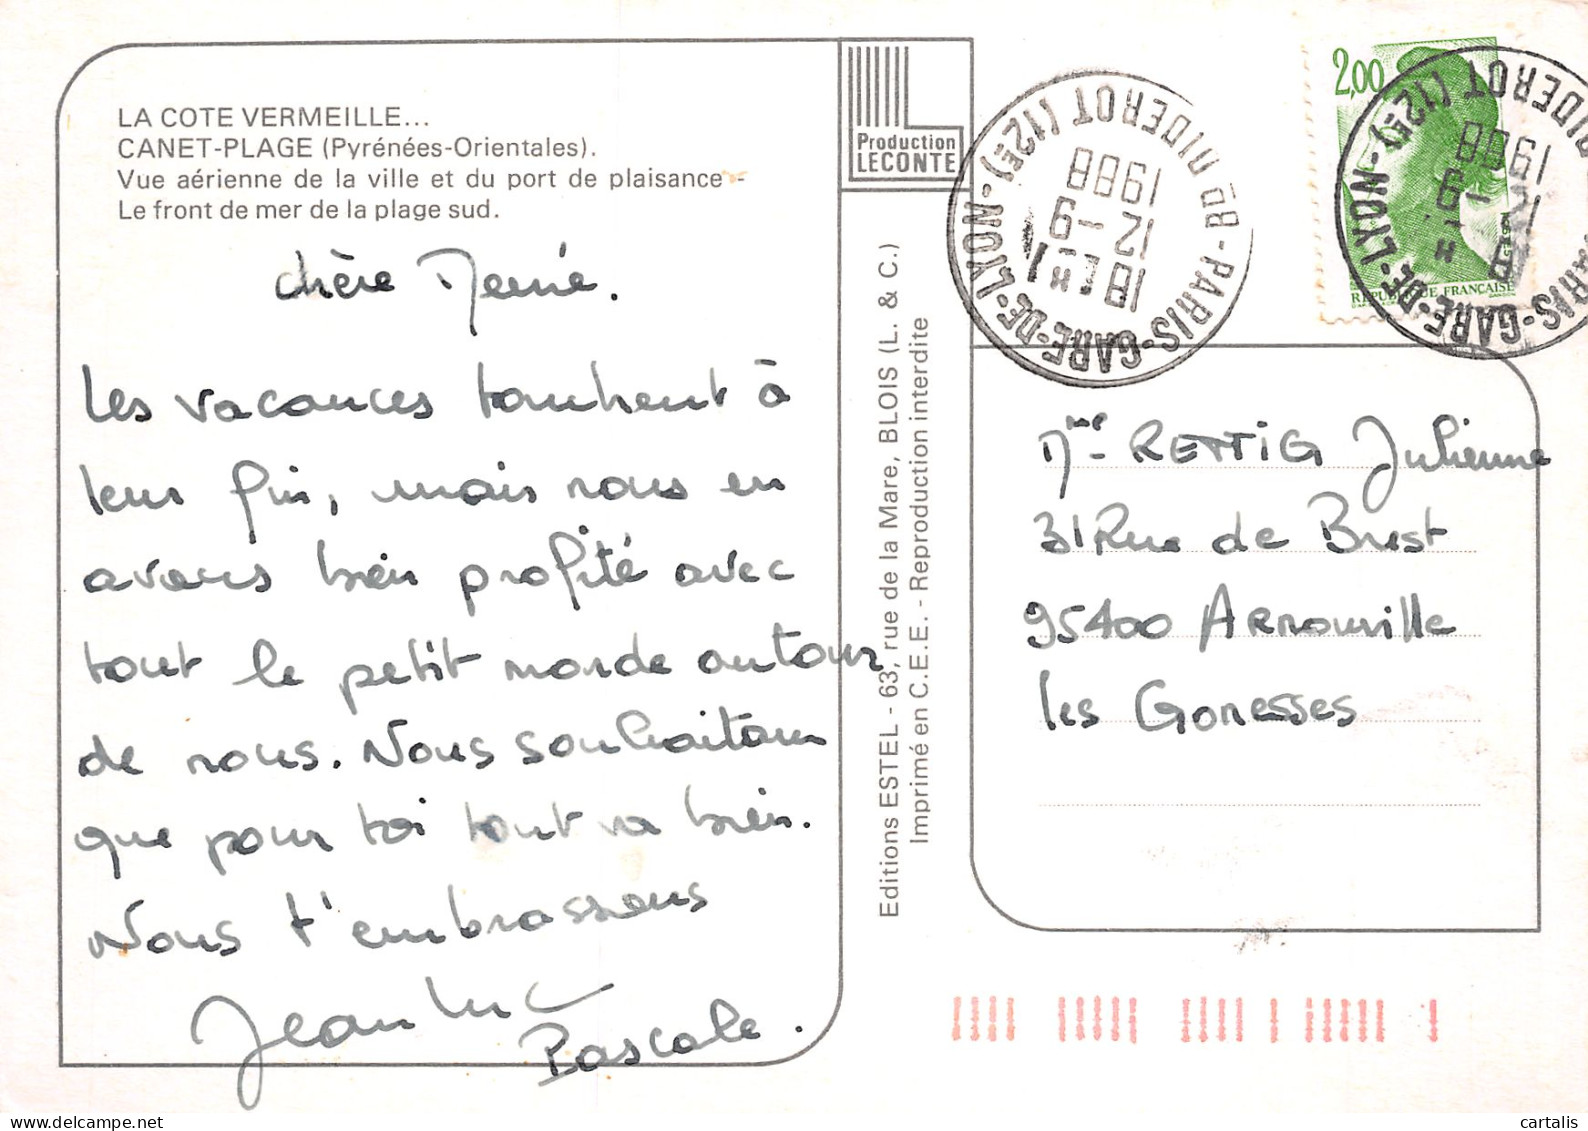 LA COTE VERMEILLE...
CANET-PLAGE (Pyrénées-Orientales).
Vue aérienne de la ville et du port de plaisance -
Le front de mer de la plage sud.
chère Mémé.
Les vacances touchent à
leur fin, mais nous en
avons bien profité avec
tout le petit monde autour
de nous. Nous souhaitons
que pour toi tout va bien.
Nous t'embrassons
Jean Luc
Pascale.
Production
LECONTE
Editions ESTEL - 63, rue de la Mare, BLOIS (L. & C.)
Imprimé en C.E.E. - Reproduction interdite
PARIS-GARE-DE-LYON-(12E) BD DIDEROT
18H
12-9
1988
2,00
RÉPUBLIQUE FRANÇAISE
PARIS-GARE-DE-LYON-(12E) DIDEROT
18H
12-9
1988
Mme RETTIG Julienne
31 Rue de Brest
95400 Arnouville
les Gonesses
cartalis